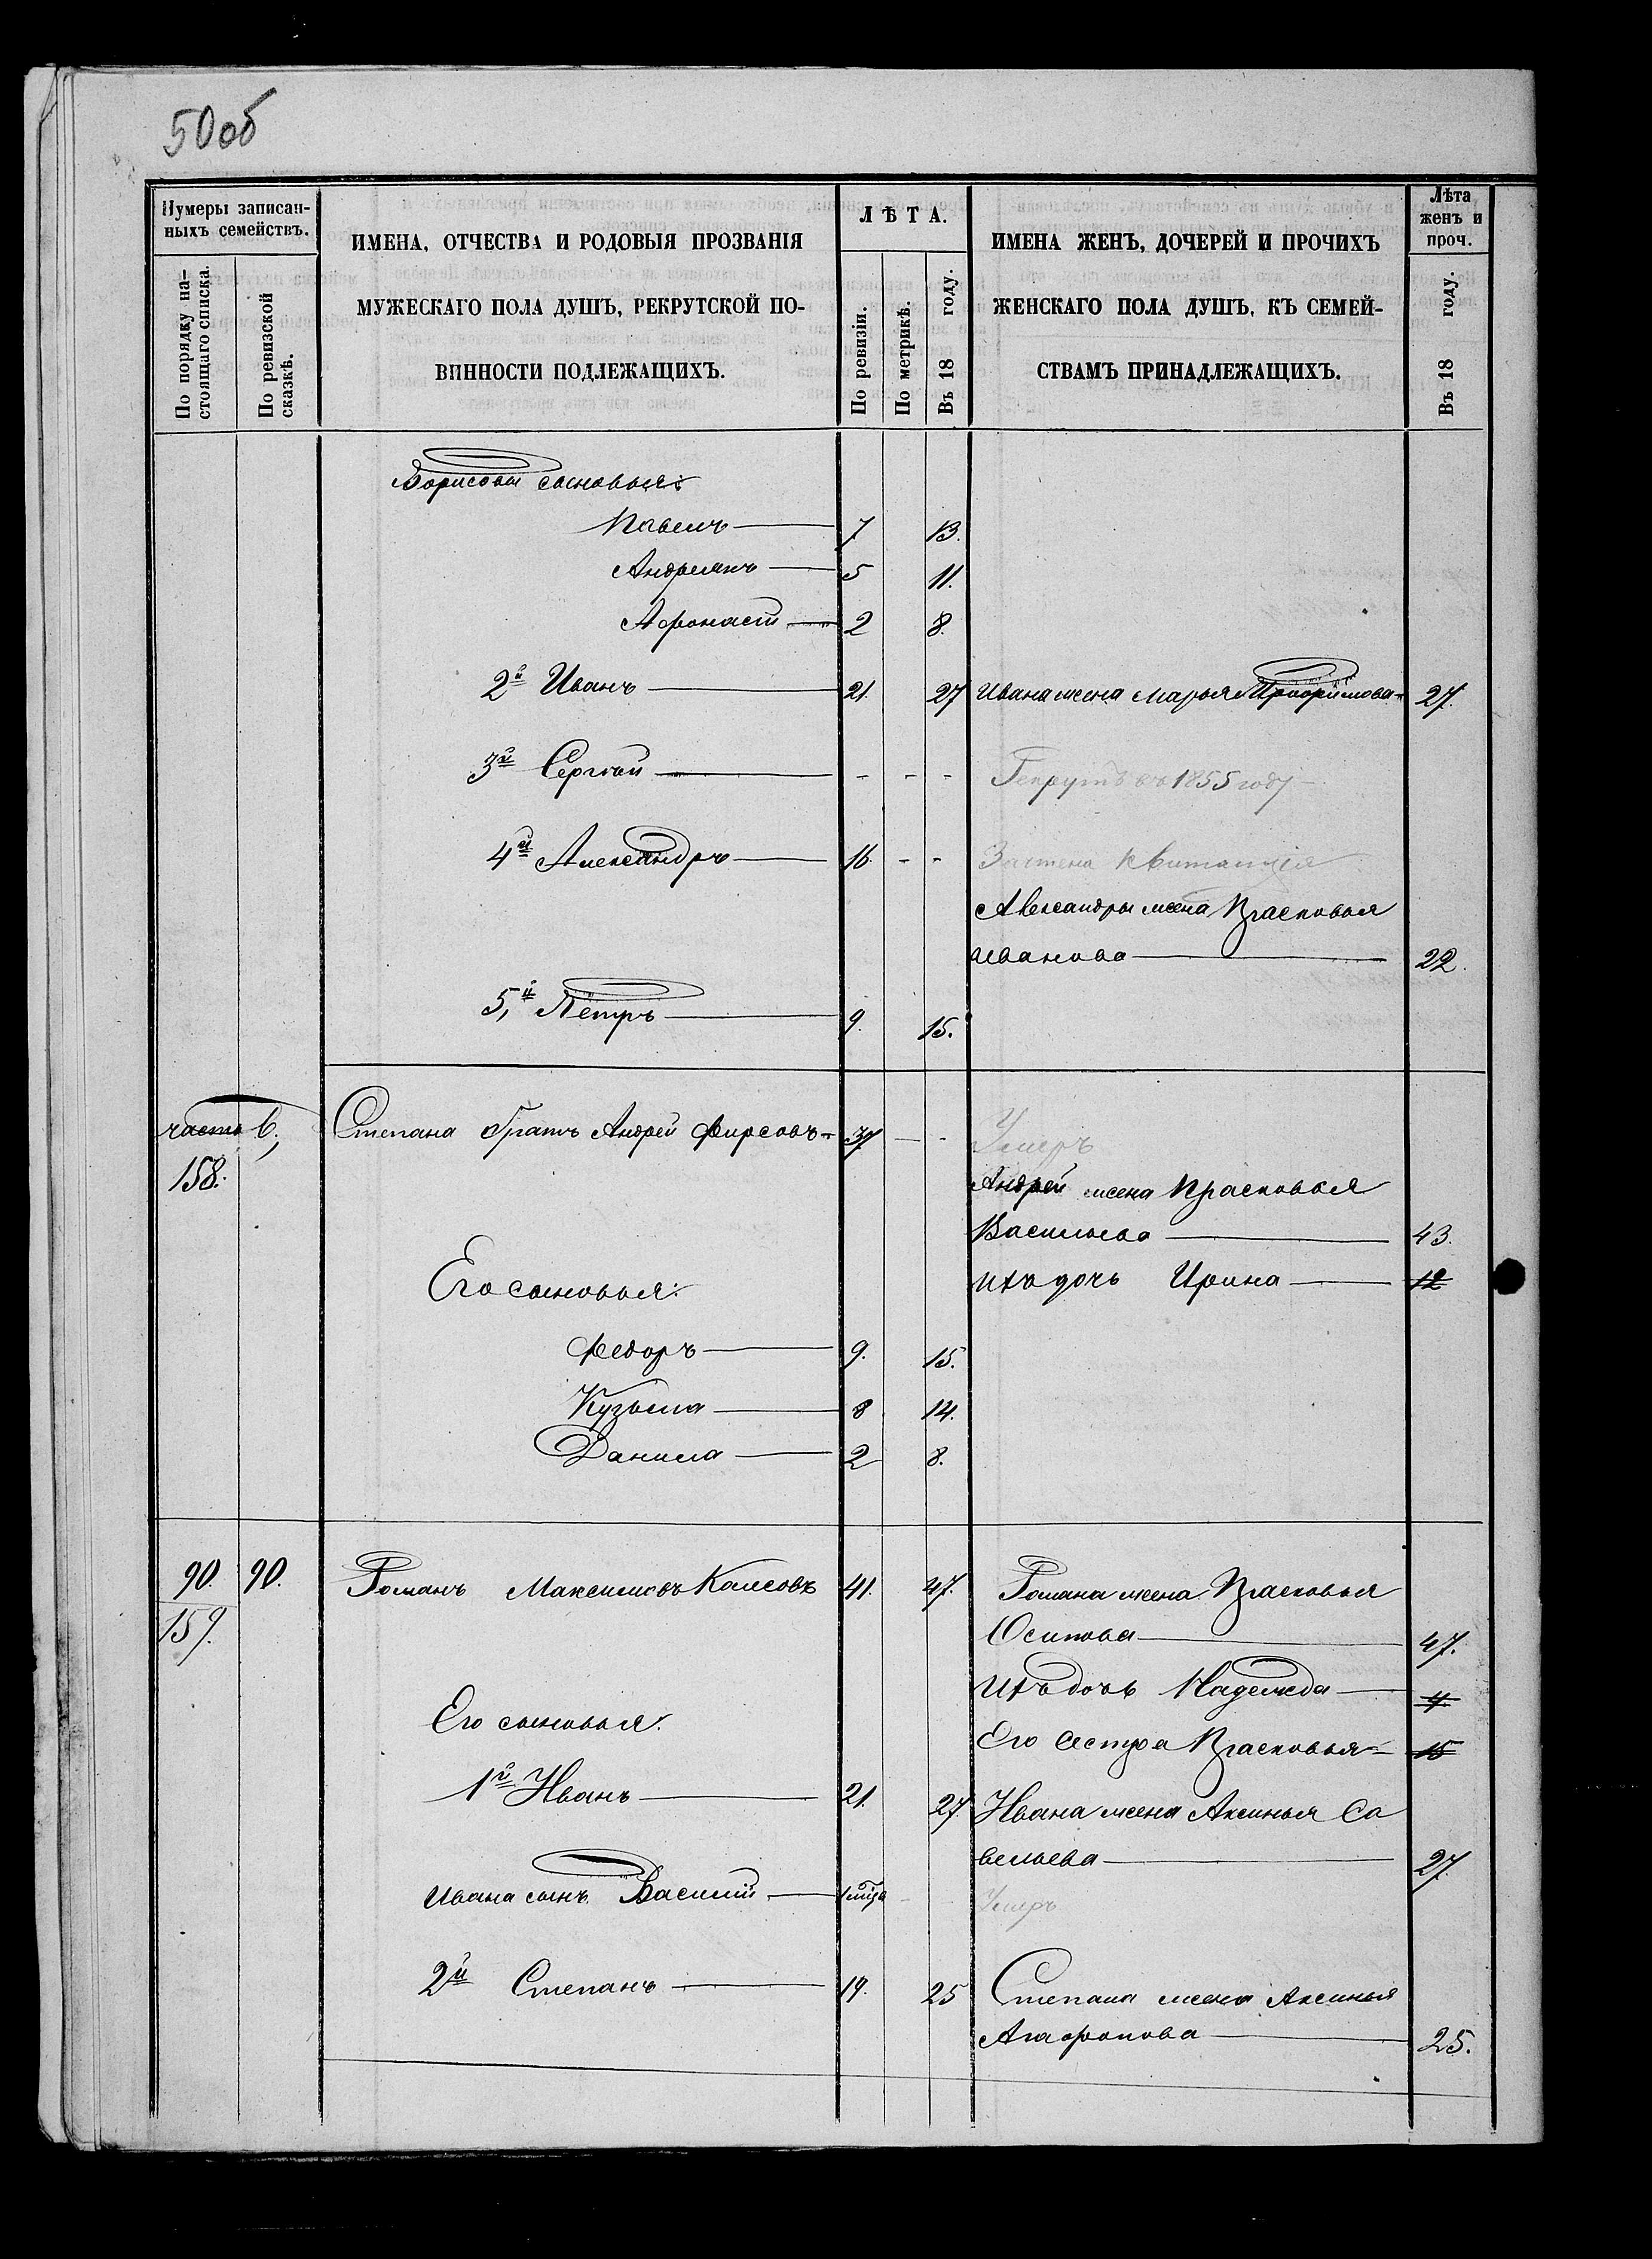 50об
Нумеры записан-
ныхъ семействъ.
По порядку на-
стоящаго списка.
По ревизской
сказкѣ.
ИМЕНА, ОТЧЕСТВА И РОДОВЫЯ ПРОЗВАНІЯ
МУЖЕСКАГО ПОЛА ДУШЪ, РЕКРУТСКОЙ ПО-
ВИННОСТИ ПОДЛЕЖАЩИХЪ.
ЛѢТА.
По ревизіи.
По метрикѣ.
Въ 18 году.
ИМЕНА ЖЕНЪ, ДОЧЕРЕЙ И ПРОЧИХЪ
ЖЕНСКАГО ПОЛА ДУШЪ, КЪ СЕМЕЙ-
СТВАМЪ ПРИНАДЛЕЖАЩИХЪ.
Лѣта
женъ и
проч.
Въ 18 году.
Борисовы сыновья:
Павелъ 7 13.
Андреянъ 5 11.
Афонасій 2 8.
2й Иванъ 21. 27 Ивана жена Марья 27.
3й Сергѣй - - - Рекрутъ въ 1855 году
4й Александръ 16 - - Зачтена квитанція
Александры жена Прасковья
Иванова 22.
5й Пётръ 9. 15.
часть в;
158. Степана братъ Андрей Фирсовъ 37 - - Умеръ
Андрей жена Прасковья
Васильева 43.
Ихъ дочь Ирина 12
Его сыновья:
Федоръ 9. 15.
Кузьма 8 14.
Данила 2 8.
90. 90. Романъ Максимовъ 41. 47. Романа жена Прасковья
159. Осипова 47.
Ихъ дочь Надежда 4.
Его сыновья: Его сестра Прасковья 15
1й Иванъ 21. 27 Ивана жена Аксинья Са
вельева 27.
Ивана сынъ Василій Умеръ
2й Степанъ 19. 25 Степана жена Аксинья
Агафонова 25.